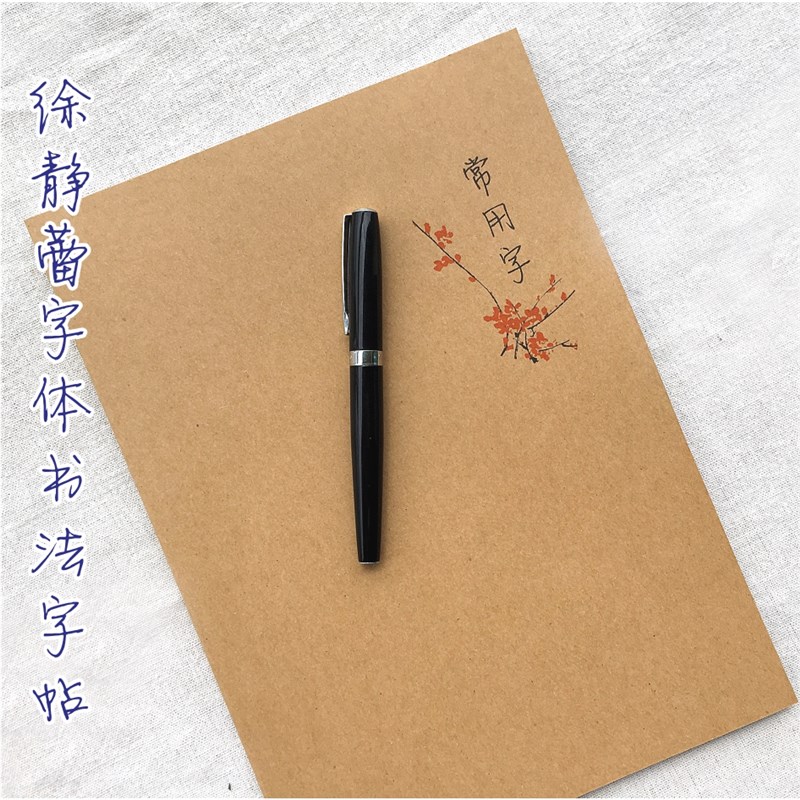 徐静蕾字体书法字帖
常用字